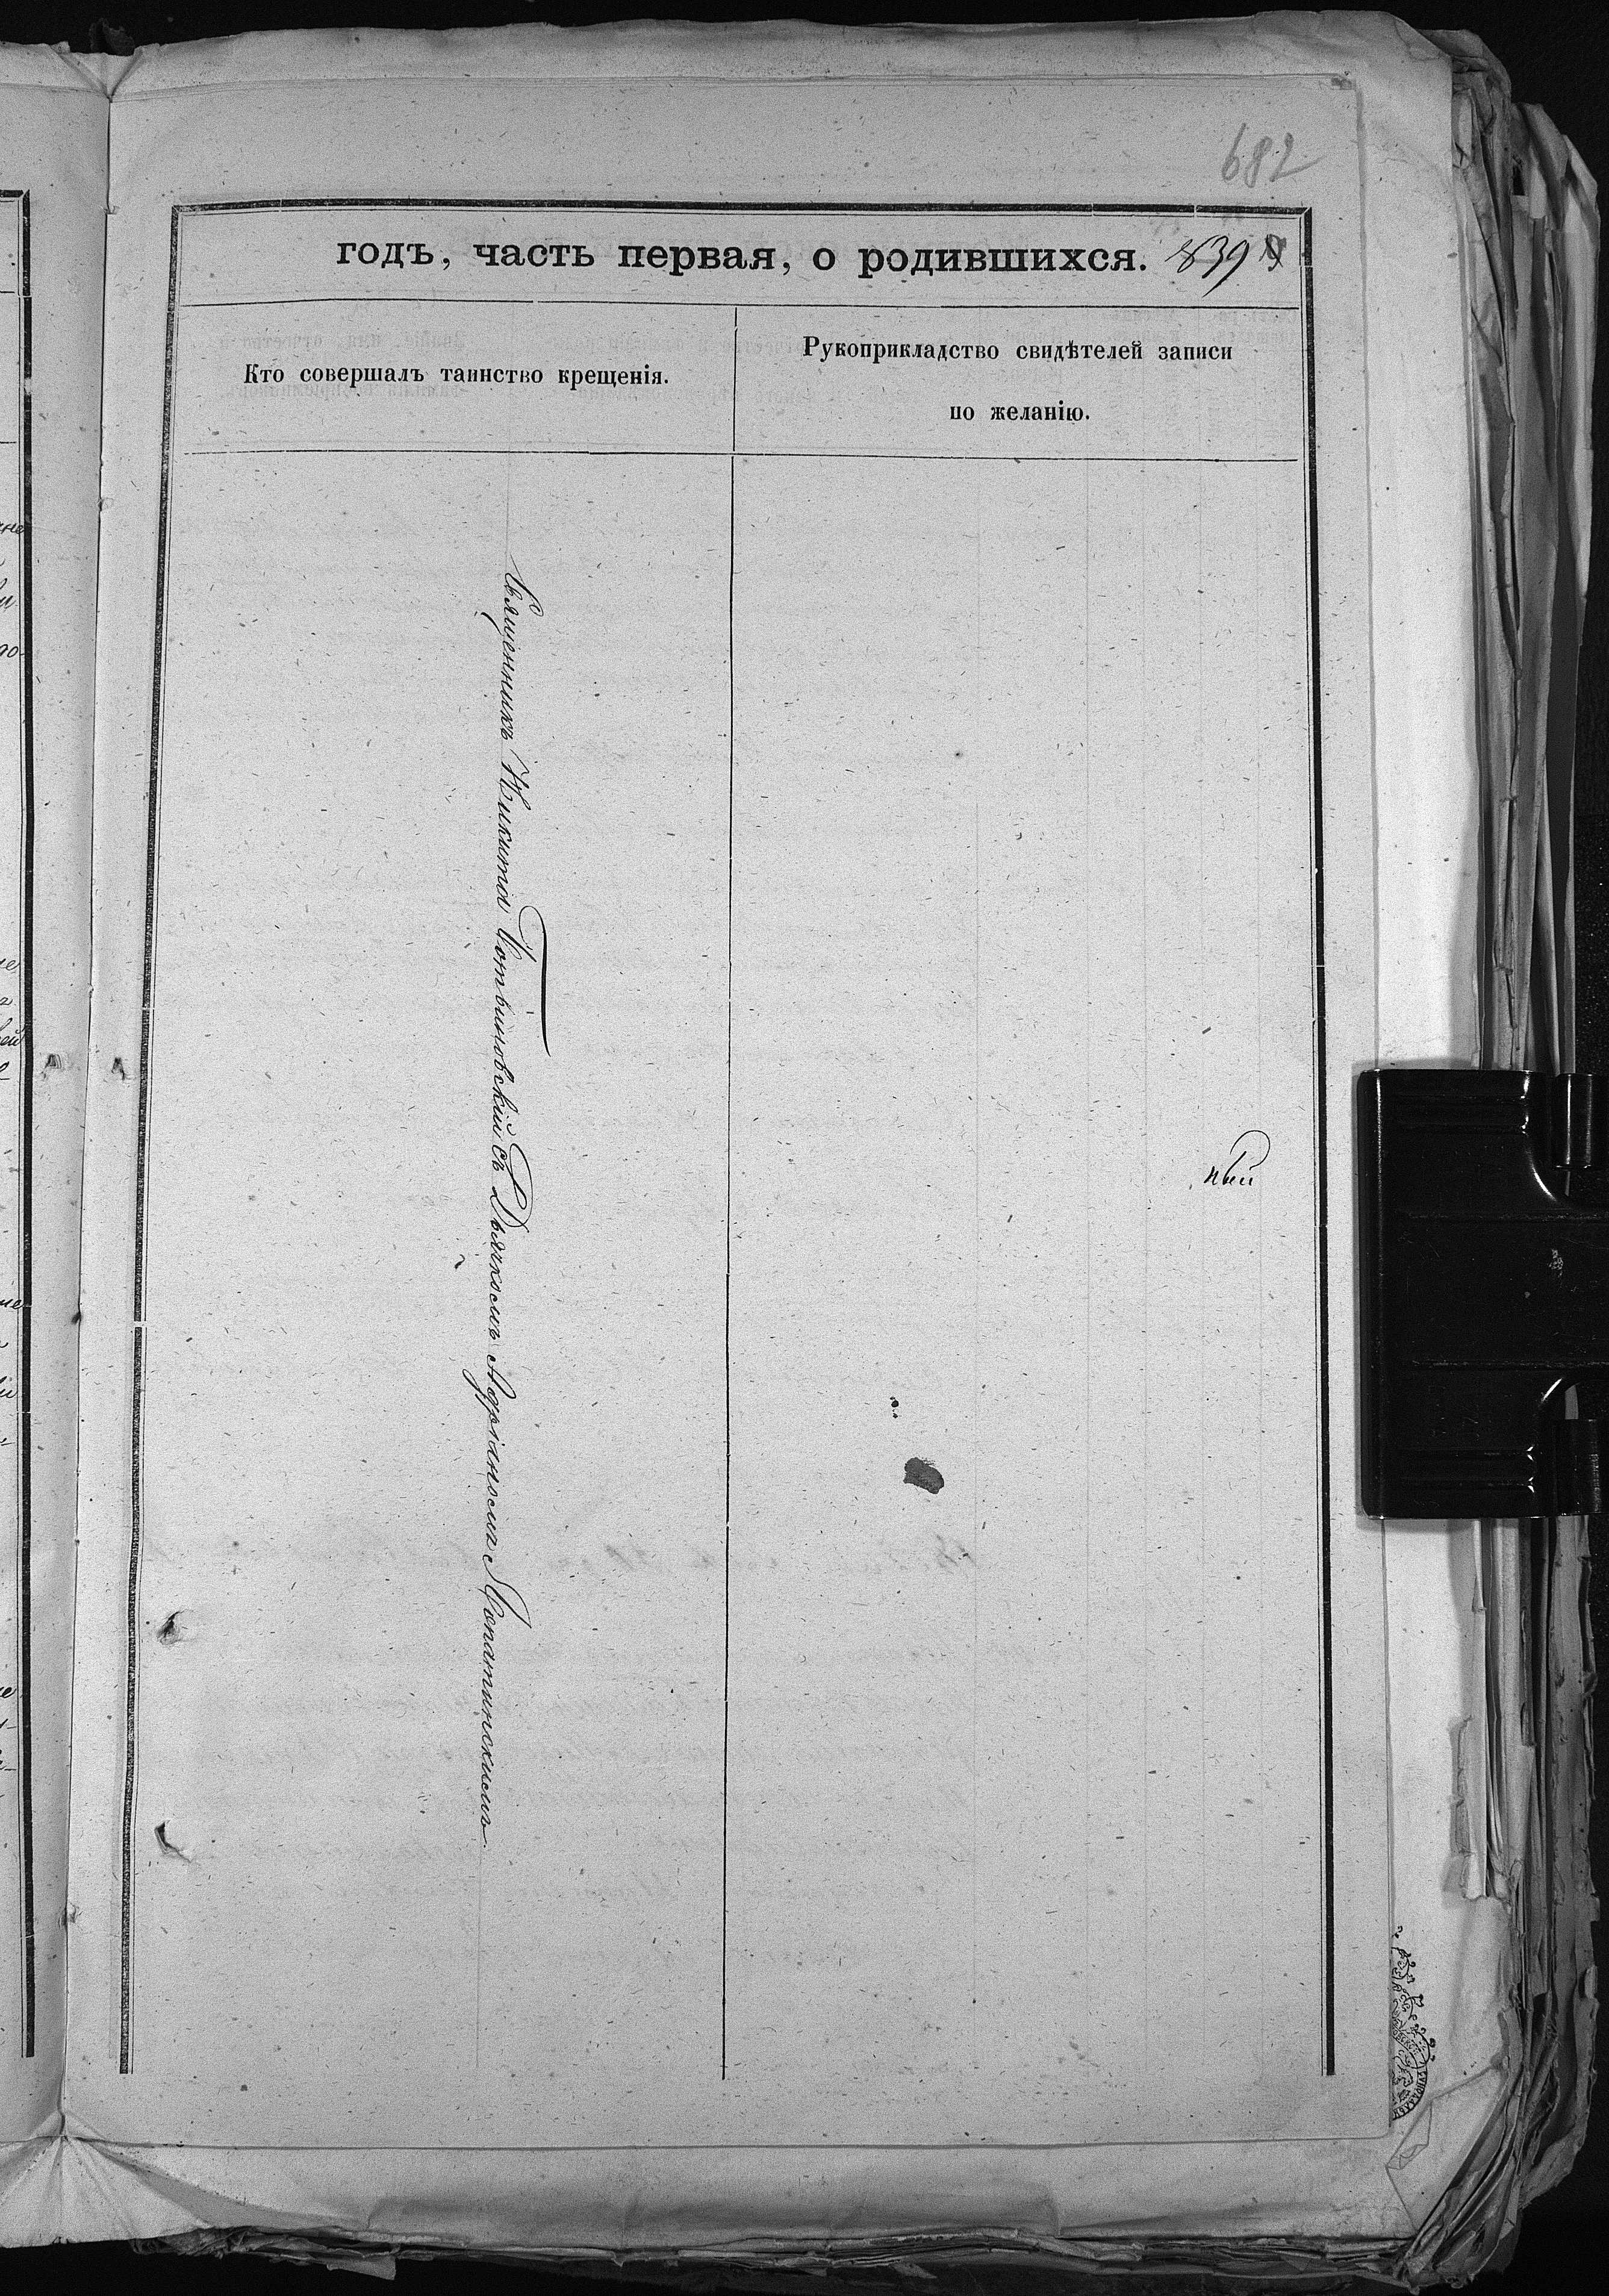 682
годъ, часть первая, о родившихся. 839
Кто совершалъ таинство крещенія.
Рукоприкладство свидѣтелей записи
по желанію.
Священникъ Никита Ботвиновскій съ Дьячкомъ Адріаномъ Лопатинскимъ.
ный